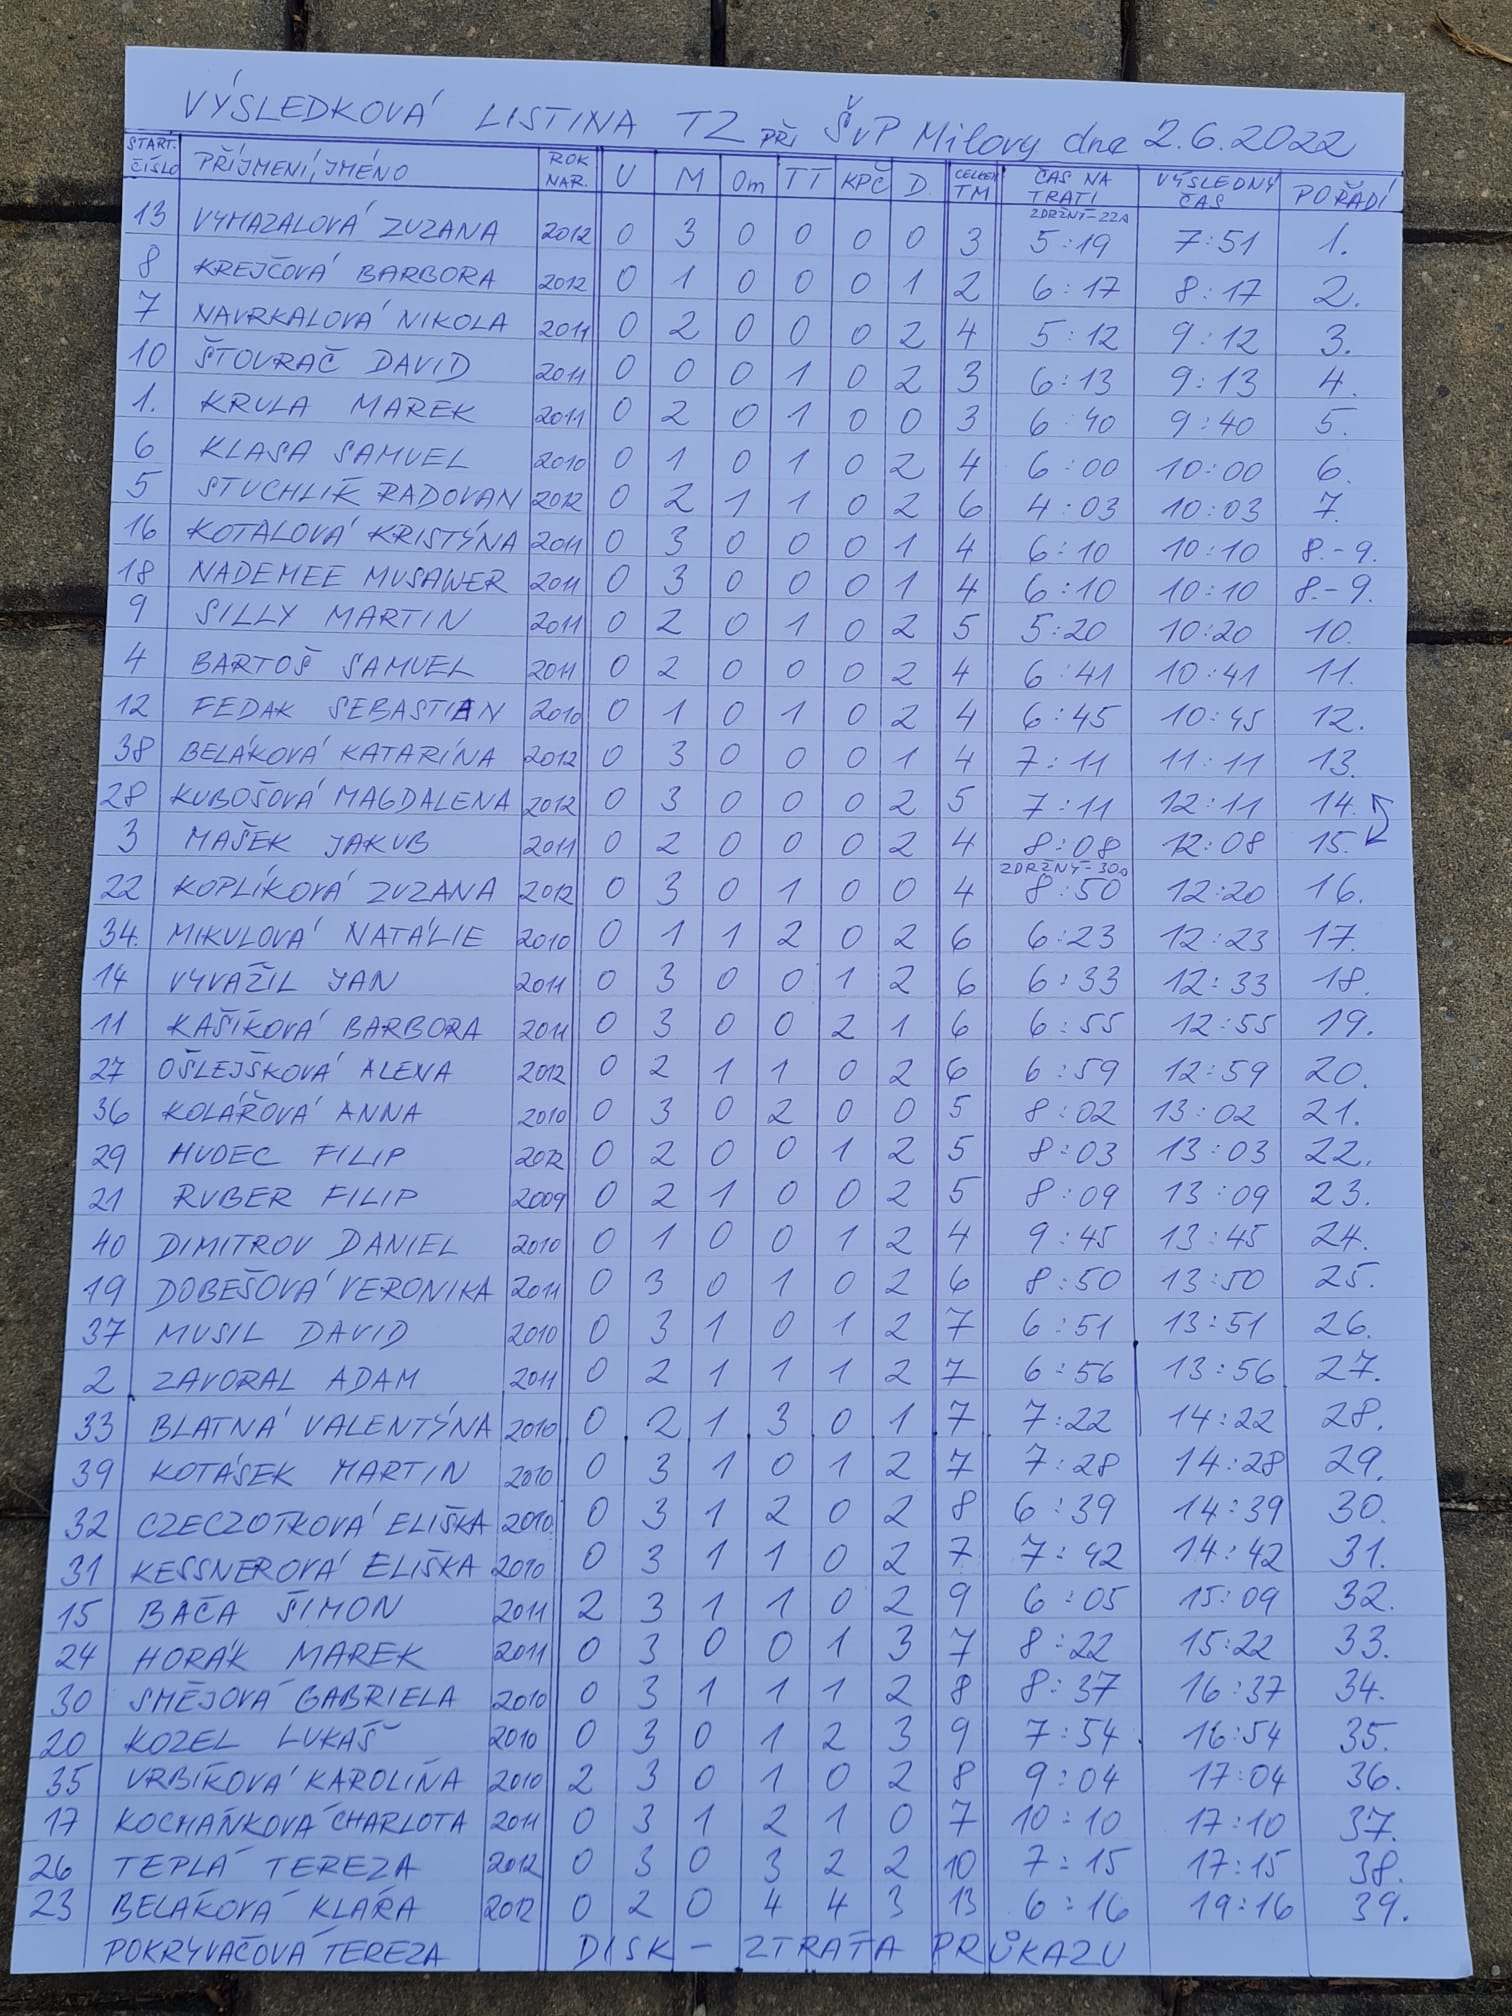 VÝSLEDKOVÁ LISTINA TZ PŘI ŠVP Milovy dne 2.6.2022
START. ČÍSLO PŘÍJMENÍ, JMÉNO ROK NAR. U M Om TT KPČ D. CELKEM TM ČAS NA TRATI VÝSLEDNÝ ČAS POŘADÍ
ZDRŽNÝ-22s
13 VYMAZALOVÁ ZUZANA 2012 0 3 0 0 0 0 3 5:19 7:51 1.
8 KREJČOVÁ BARBORA 2012 0 1 0 0 0 1 2 6:17 8:17 2.
7 NAVRKALOVÁ NIKOLA 2011 0 2 0 0 0 2 4 5:12 9:12 3.
10 ŠTOURAČ DAVID 2011 0 0 0 1 0 2 3 6:13 9:13 4.
1. KRULA MAREK 2011 0 2 0 1 0 0 3 6:40 9:40 5.
6 KLASA SAMUEL 2010 0 1 0 1 0 2 4 6:00 10:00 6.
5 STUCHLÍK RADOVAN 2012 0 2 1 1 0 2 6 4:03 10:03 7.
16 KOTALOVÁ KRISTÝNA 2011 0 3 0 0 0 1 4 6:10 10:10 8.-9.
18 NADEMEE MUSAWER 2011 0 3 0 0 0 1 4 6:10 10:10 8.-9.
9 SILLY MARTIN 2011 0 2 0 1 0 2 5 5:20 10:20 10.
4 BARTOŠ SAMUEL 2011 0 2 0 0 0 2 4 6:41 10:41 11.
12 FEDAK SEBASTIAN 2010 0 1 0 1 0 2 4 6:45 10:45 12.
38 BELÁKOVÁ KATARÍNA 2012 0 3 0 0 0 1 4 7:11 11:11 13.
28 KUBOŠOVÁ MAGDALENA 2012 0 3 0 0 0 2 5 7:11 12:11 14.
3 MAŠEK JAKUB 2011 0 2 0 0 0 2 4 8:08 12:08 15.
ZDRŽNÝ-30s
22 KOPLÍKOVÁ ZUZANA 2012 0 3 0 1 0 0 4 8:50 12:20 16.
34. MIKULOVÁ NATÁLIE 2010 0 1 1 2 0 2 6 6:23 12:23 17.
14 VYVAŽIL JAN 2011 0 3 0 0 1 2 6 6:33 12:33 18.
11 KAŠÍKOVÁ BARBORA 2011 0 3 0 0 2 1 6 6:55 12:55 19.
27 OŠLEJŠKOVÁ ALENA 2012 0 2 1 1 0 2 6 6:59 12:59 20.
36 KOLÁŘOVÁ ANNA 2010 0 3 0 2 0 0 5 8:02 13:02 21.
29 HUDEC FILIP 2012 0 2 0 0 1 2 5 8:03 13:03 22.
21 RUBER FILIP 2009 0 2 1 0 0 2 5 8:09 13:09 23.
40 DIMITROV DANIEL 2010 0 1 0 0 1 2 4 9:45 13:45 24.
19 DOBEŠOVÁ VERONIKA 2011 0 3 0 1 0 2 6 8:50 13:50 25.
37 MUSIL DAVID 2010 0 3 1 0 1 2 7 6:51 13:51 26.
2 ZAVORAL ADAM 2011 0 2 1 1 1 2 7 6:56 13:56 27.
33 BLATNÁ VALENTÝNA 2010 0 2 1 3 0 1 7 7:22 14:22 28.
39 KOTÁSEK MARTIN 2010 0 3 1 0 1 2 7 7:28 14:28 29.
32 CZECZOTKOVÁ ELIŠKA 2010 0 3 1 2 0 2 8 6:39 14:39 30.
31 KESSNEROVÁ ELIŠKA 2010 0 3 1 1 0 2 7 7:42 14:42 31.
15 BÁČA ŠIMON 2011 2 3 1 1 0 2 9 6:05 15:09 32.
24 HORÁK MAREK 2011 0 3 0 0 1 3 7 8:22 15:22 33.
30 SMĚJOVÁ GABRIELA 2010 0 3 1 1 1 2 8 8:37 16:37 34.
20 KOZEL LUKÁŠ 2010 0 3 0 1 2 3 9 7:54 16:54 35.
35 VRBÍKOVÁ KAROLÍNA 2010 2 3 0 1 0 2 8 9:04 17:04 36.
17 KOCHÁNKOVÁ CHARLOTA 2011 0 3 1 2 1 0 7 10:10 17:10 37.
26 TEPLÁ TEREZA 2012 0 3 0 3 2 2 10 7:15 17:15 38.
23 BELÁKOVÁ KLÁRA 2012 0 2 0 4 4 3 13 6:16 19:16 39.
POKRÝVAČOVÁ TEREZA DISK - ZTRÁTA PRŮKAZU